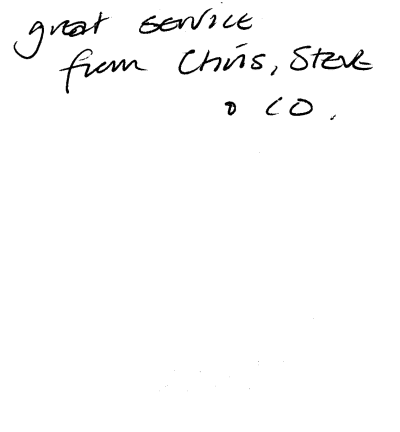 great service
from Chris, Steve
& CO.